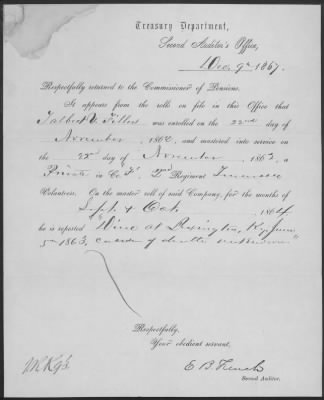 Treasury Department,
Second Auditor's Office,
Dec 9th 1867.
Respectfully returned to the Commissioner of Pensions.
It appears from the rolls on file in this Office that
Talbert was enrolled on the 22nd day of
November, 1862, and mustered into service on
the 22nd day of November, 1862, a
Private in Co. 2nd Regiment Tennessee
Volunteers. On the muster roll of said Company, for the months of
Sept & Oct, 1864
he is reported "Died at Lexington, Ky, June
5th 1863, cause of death unknown"
Respectfully,
Your obedient servant,
E B French
Second Auditor.